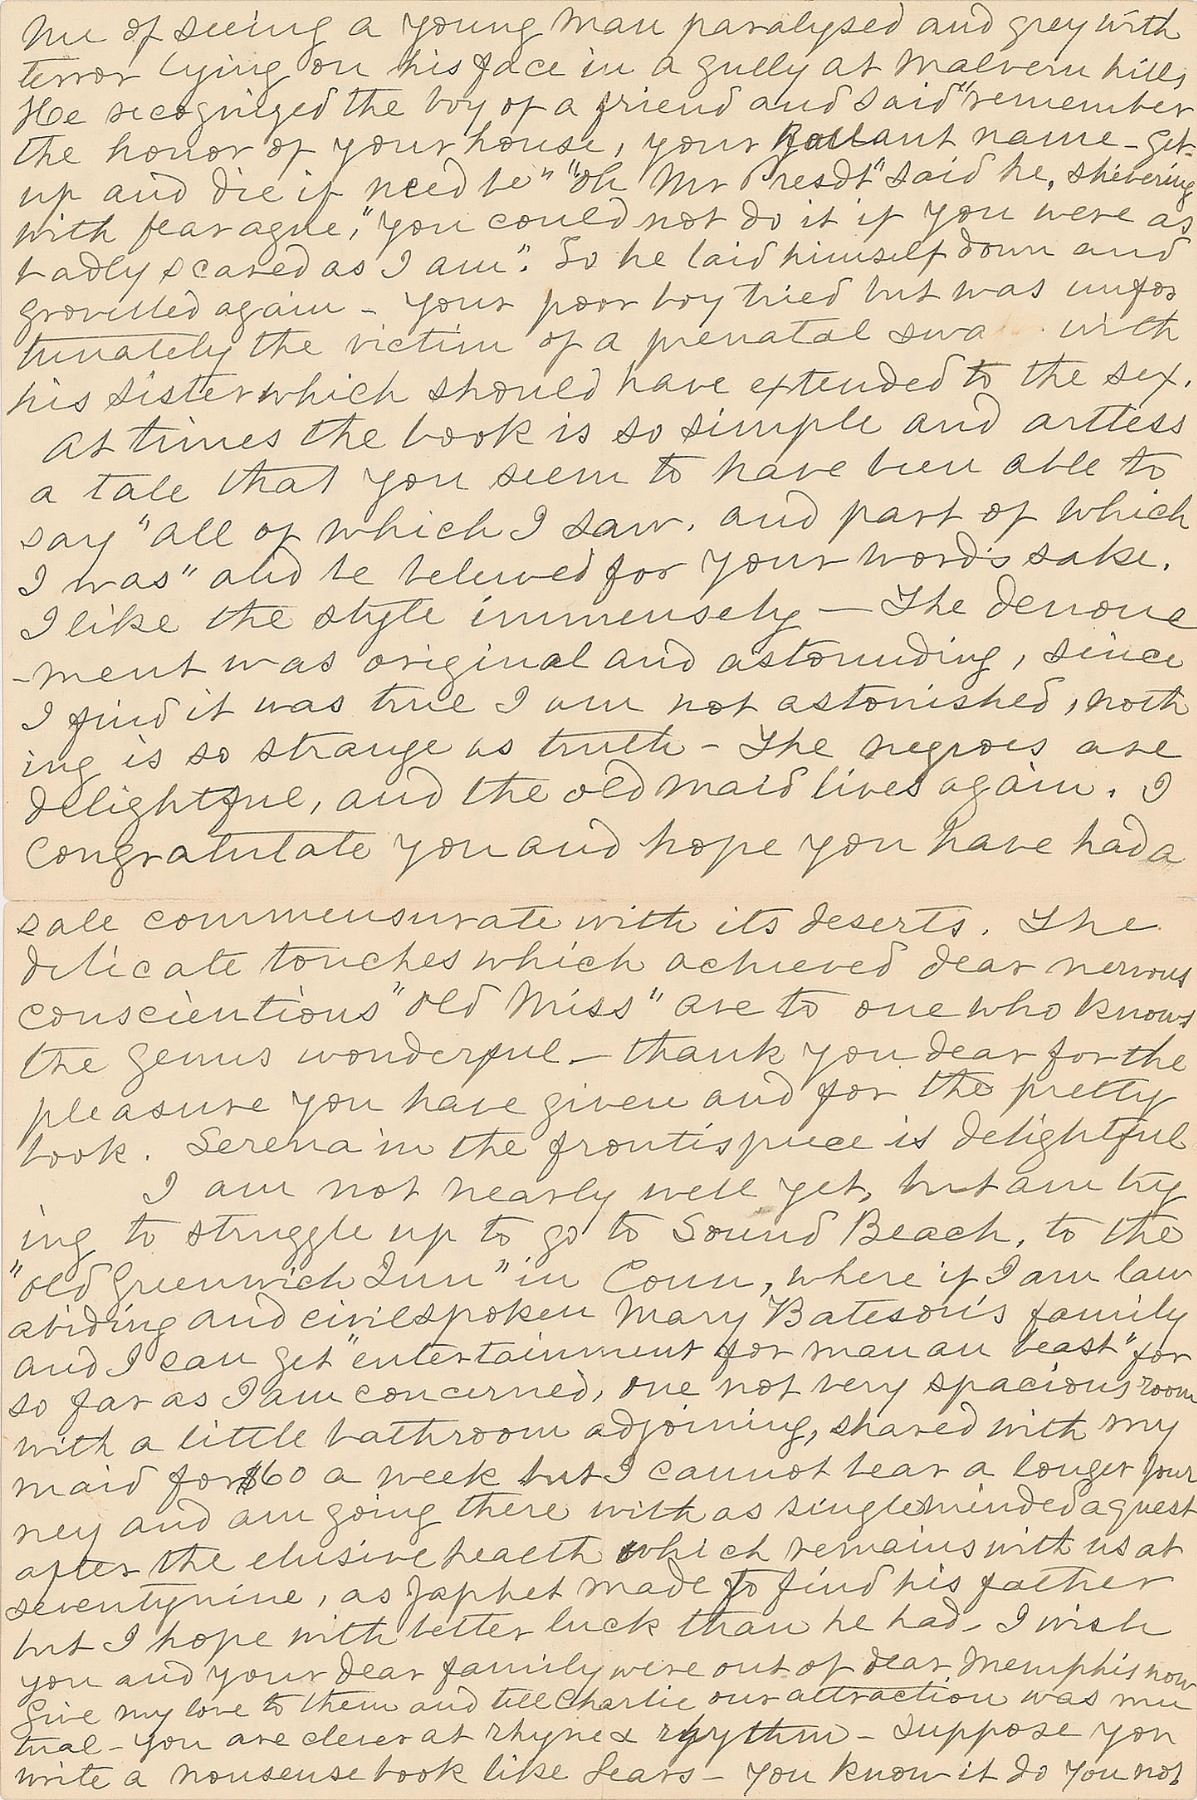 me of seeing a young man paralysed and grey with
terror lying on his face in a gully at Malvern hills
He recognized the boy of a friend and said "remember
the honor of your house, your gallant name - get
up and die if need be" "Oh Mr Presdt" said he, shivering
with fear ague, "you could not do it if you were as
badly scared as I am". So he laid himself down and
grovelled again - Your poor boy tried but was unfor
tunately the victim of a prenatal swa with
his sister which should have extended to the sex.
At times the book is so simple and artless
a tale that you seem to have been able to
say "all of which I saw. and part of which
I was" and be beleived for your word's sake.
I like the style immensely — The denoue
-ment was original and astounding, since
I find it was true I am not astonished, noth
ing is so strange as truth - The negroes are
delightful, and the old maid lives again. I
congratulate you and hope you have had a
sale commensurate with its deserts. The
delicate touches which achieved dear nervous
conscientious "Old Miss" are to one who knows
the genus wonderful - thank you dear for the
pleasure you have given and for the pretty
book. Serena in the frontispiece is delightful
I am not nearly well yet, but am try
ing to struggle up to go to Sound Beach, to the
"Old Greenwich Inn" in Conn, where if I am law
abiding and civil spoken Mary Bateson's family
and I can get "entertainment for man an beast" for
so far as I am concerned, one not very spacious room
with a little bathroom adjoining, shared with my
maid for $60 a week but I cannot bear a longer jour
ney and am going there with as singleminded a quest
after the elusive health which remains with us at
seventynine, as Japhet made to find his father
but I hope with better luck than he had - I wish
you and your dear family were out of dear Memphis now
Give my love to them and tell Charlie our attraction was mu
tual - You are clever at rhyme & rhythm - Suppose you
write a nonsense book like Lears - You know it do you not